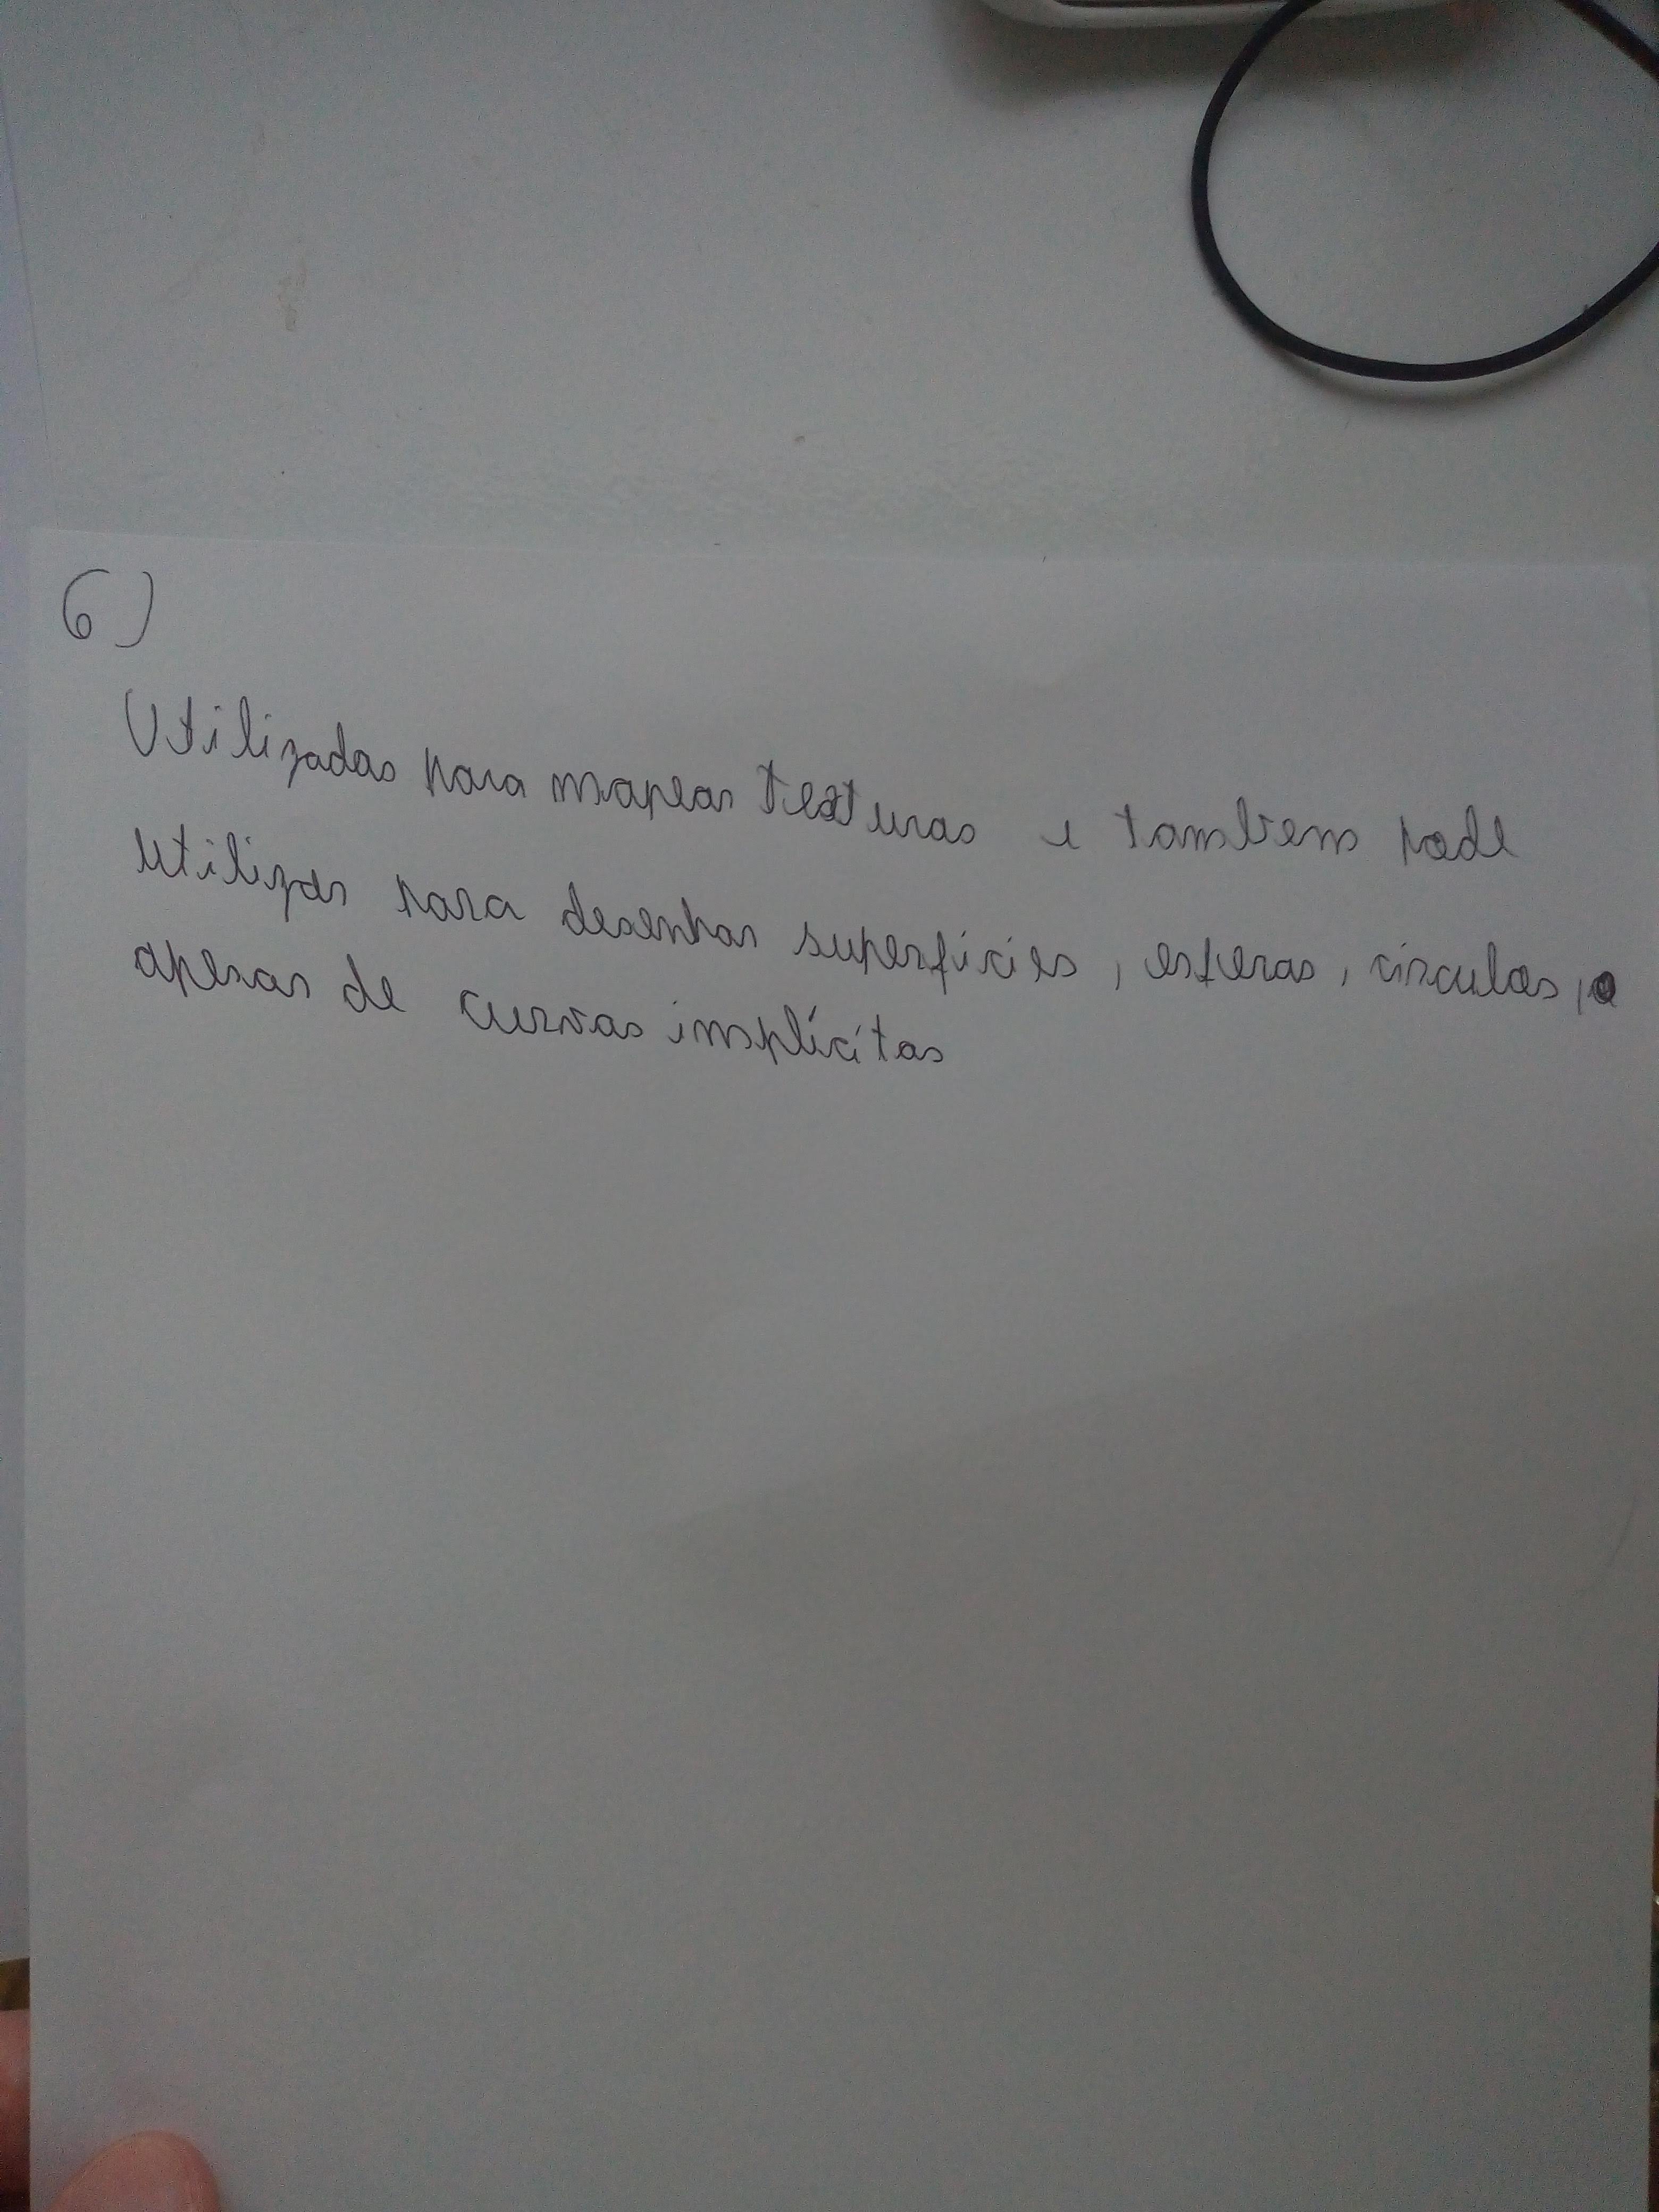 6)
Utilizadas para mapear texturas e tambem pode
utilizar para desenhar superfícies, esferas, círculos,
apesar de curvas implícitas